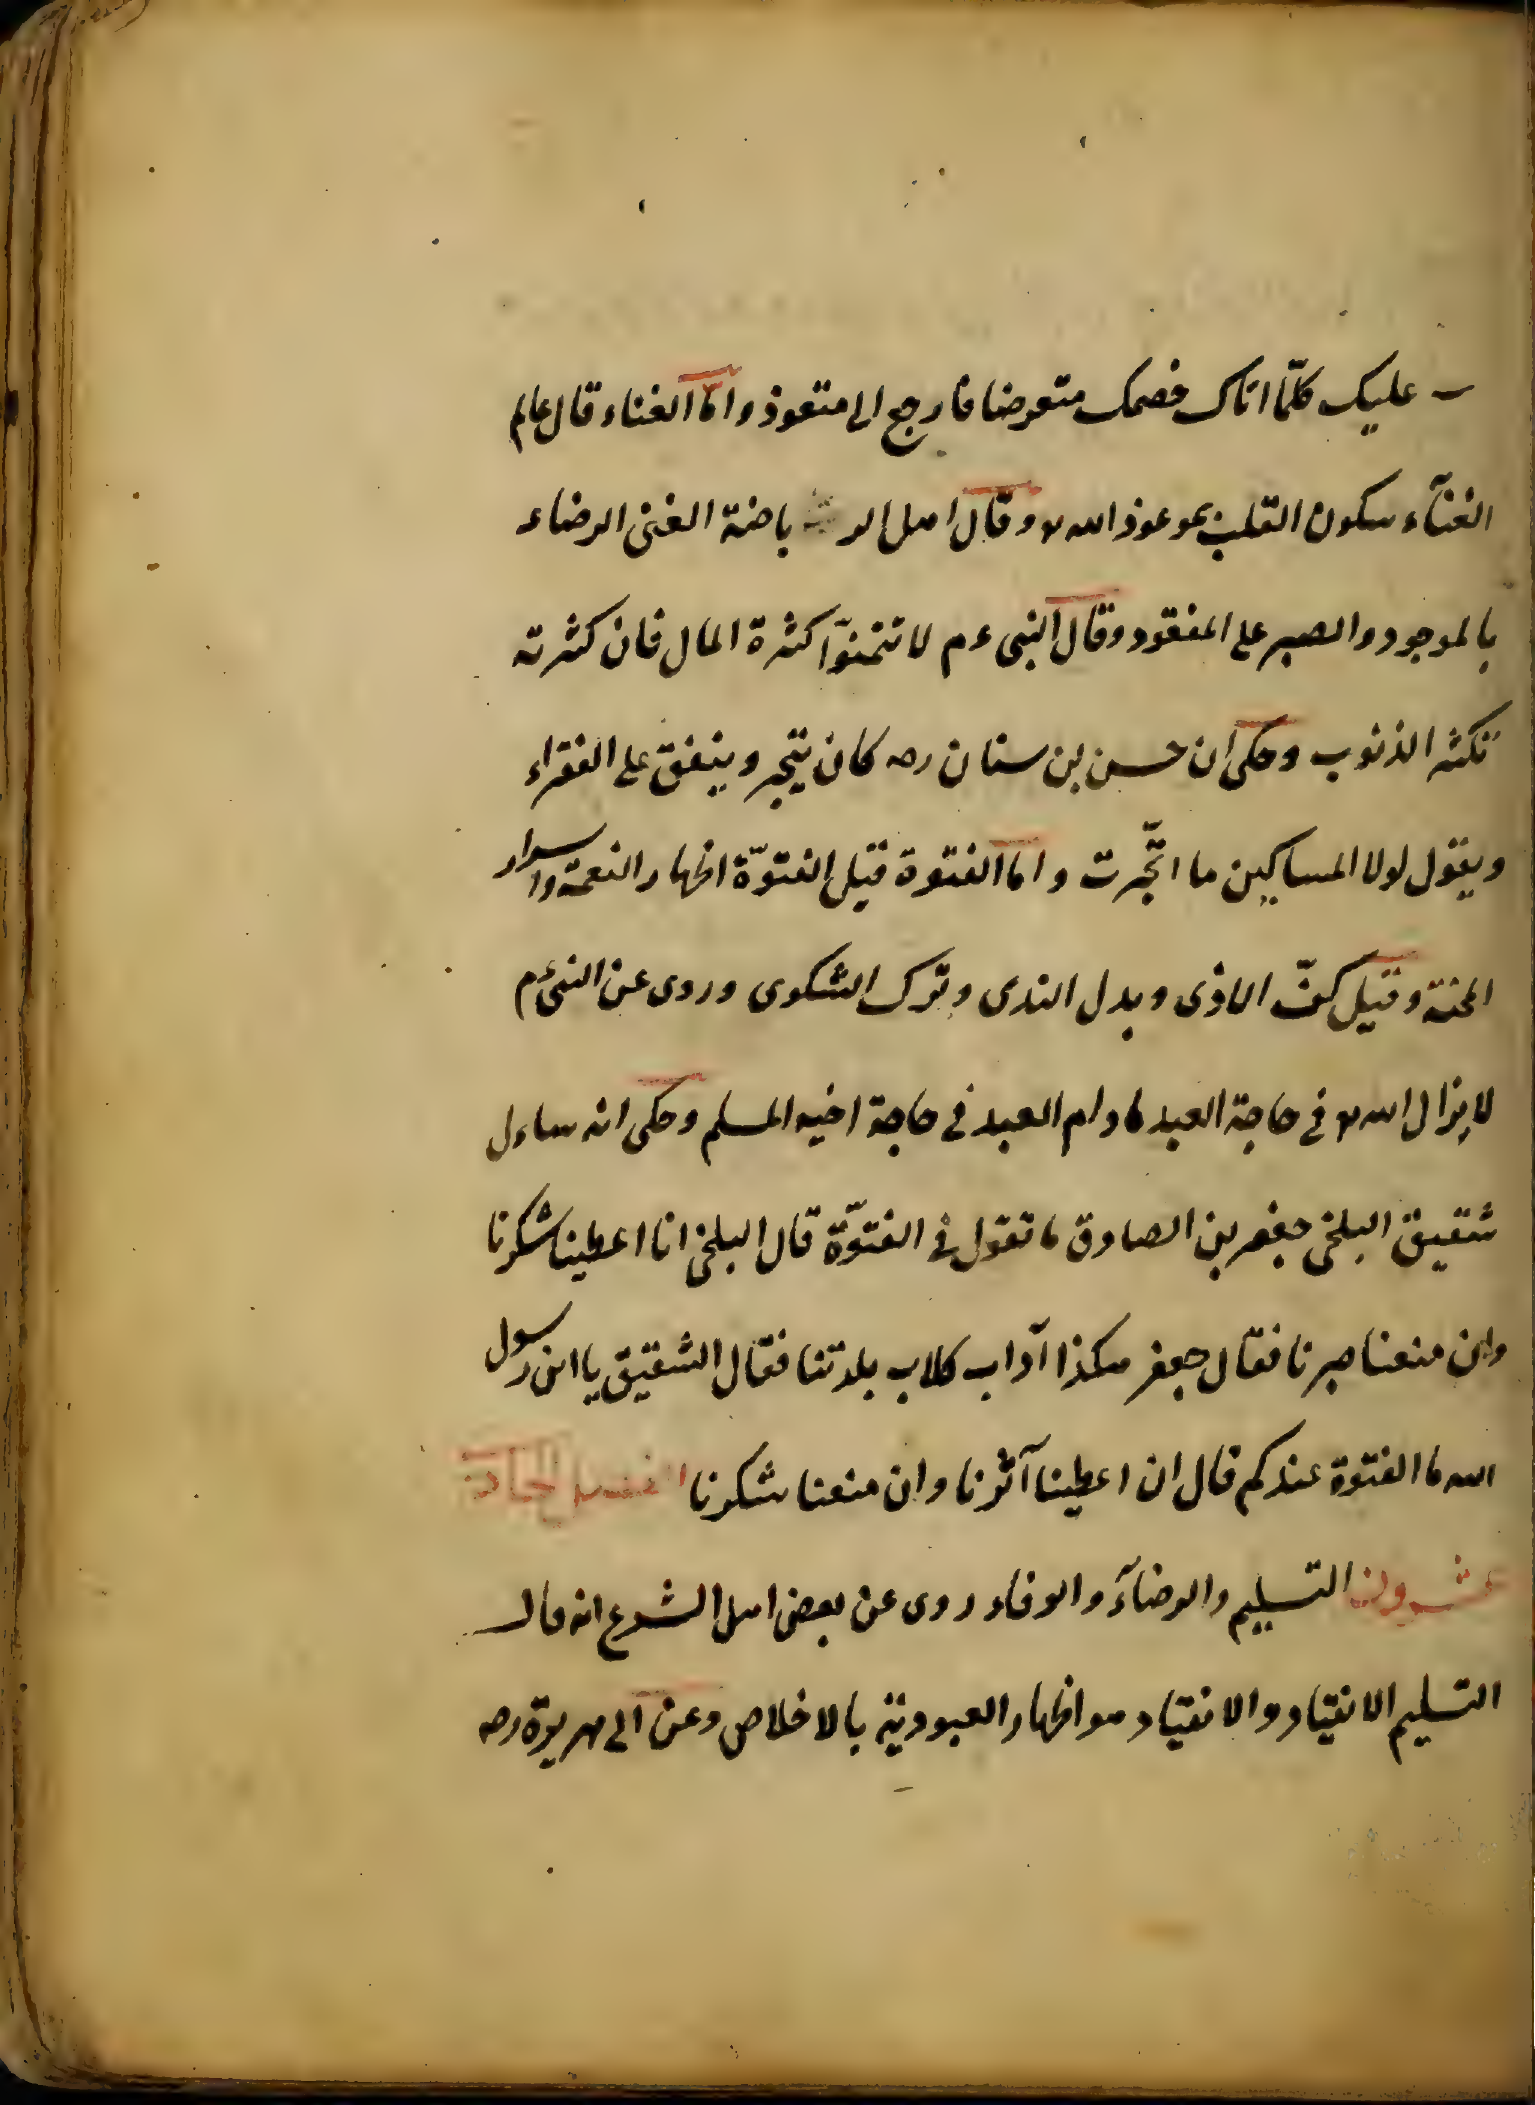 عليك كلّما اتاك خصمك متعرضا فارجع الى متعوذ واما الغناء قال عالم
الغنآء سكون القلب بموعوذ الله وقال اهل الرياضة الغنى الرضاء
بالموجود والصبر على المفقود وقال النبى عم لا تتمنوا كثرة المال فان كثرته
تكثر الذنوب وحكى ان حسن بن سنان رحه كان يتجر وينفق على الفقراء
ويقول لولا المساكين ما اتّجرت واما الفتوة قيل الفتوّة اظهار النعمة واسرار
المحنة وقيل كفّ الاذى وبدل الندى وترك الشكوى وروى عن النبى عم
لا يزال الله فى حاجة العبد مادام العبد فى حاجة اخيه المسلم وحكى انه ساءل
شقيق البلخى جعفر بن الصادق ما تقول فى الفتوّة قال البلخى انا اعطينا شكرنا
وان منعنا صبرنا فقال جعفر هكذا آداب كلاب بلدتنا فقال الشقيق يا ابن رسول
الله ما الفتوة عندكم قال ان اعطينا آثرنا وان منعنا شكرنا الفصل الحاد
عشرون التسليم والرضآء والوفاء روى عن بعض اهل الشرع انه قال
التسليم الانقياد والانقياد هو اظهار العبودية بالاخلاص وعن ابى هريرة رصه